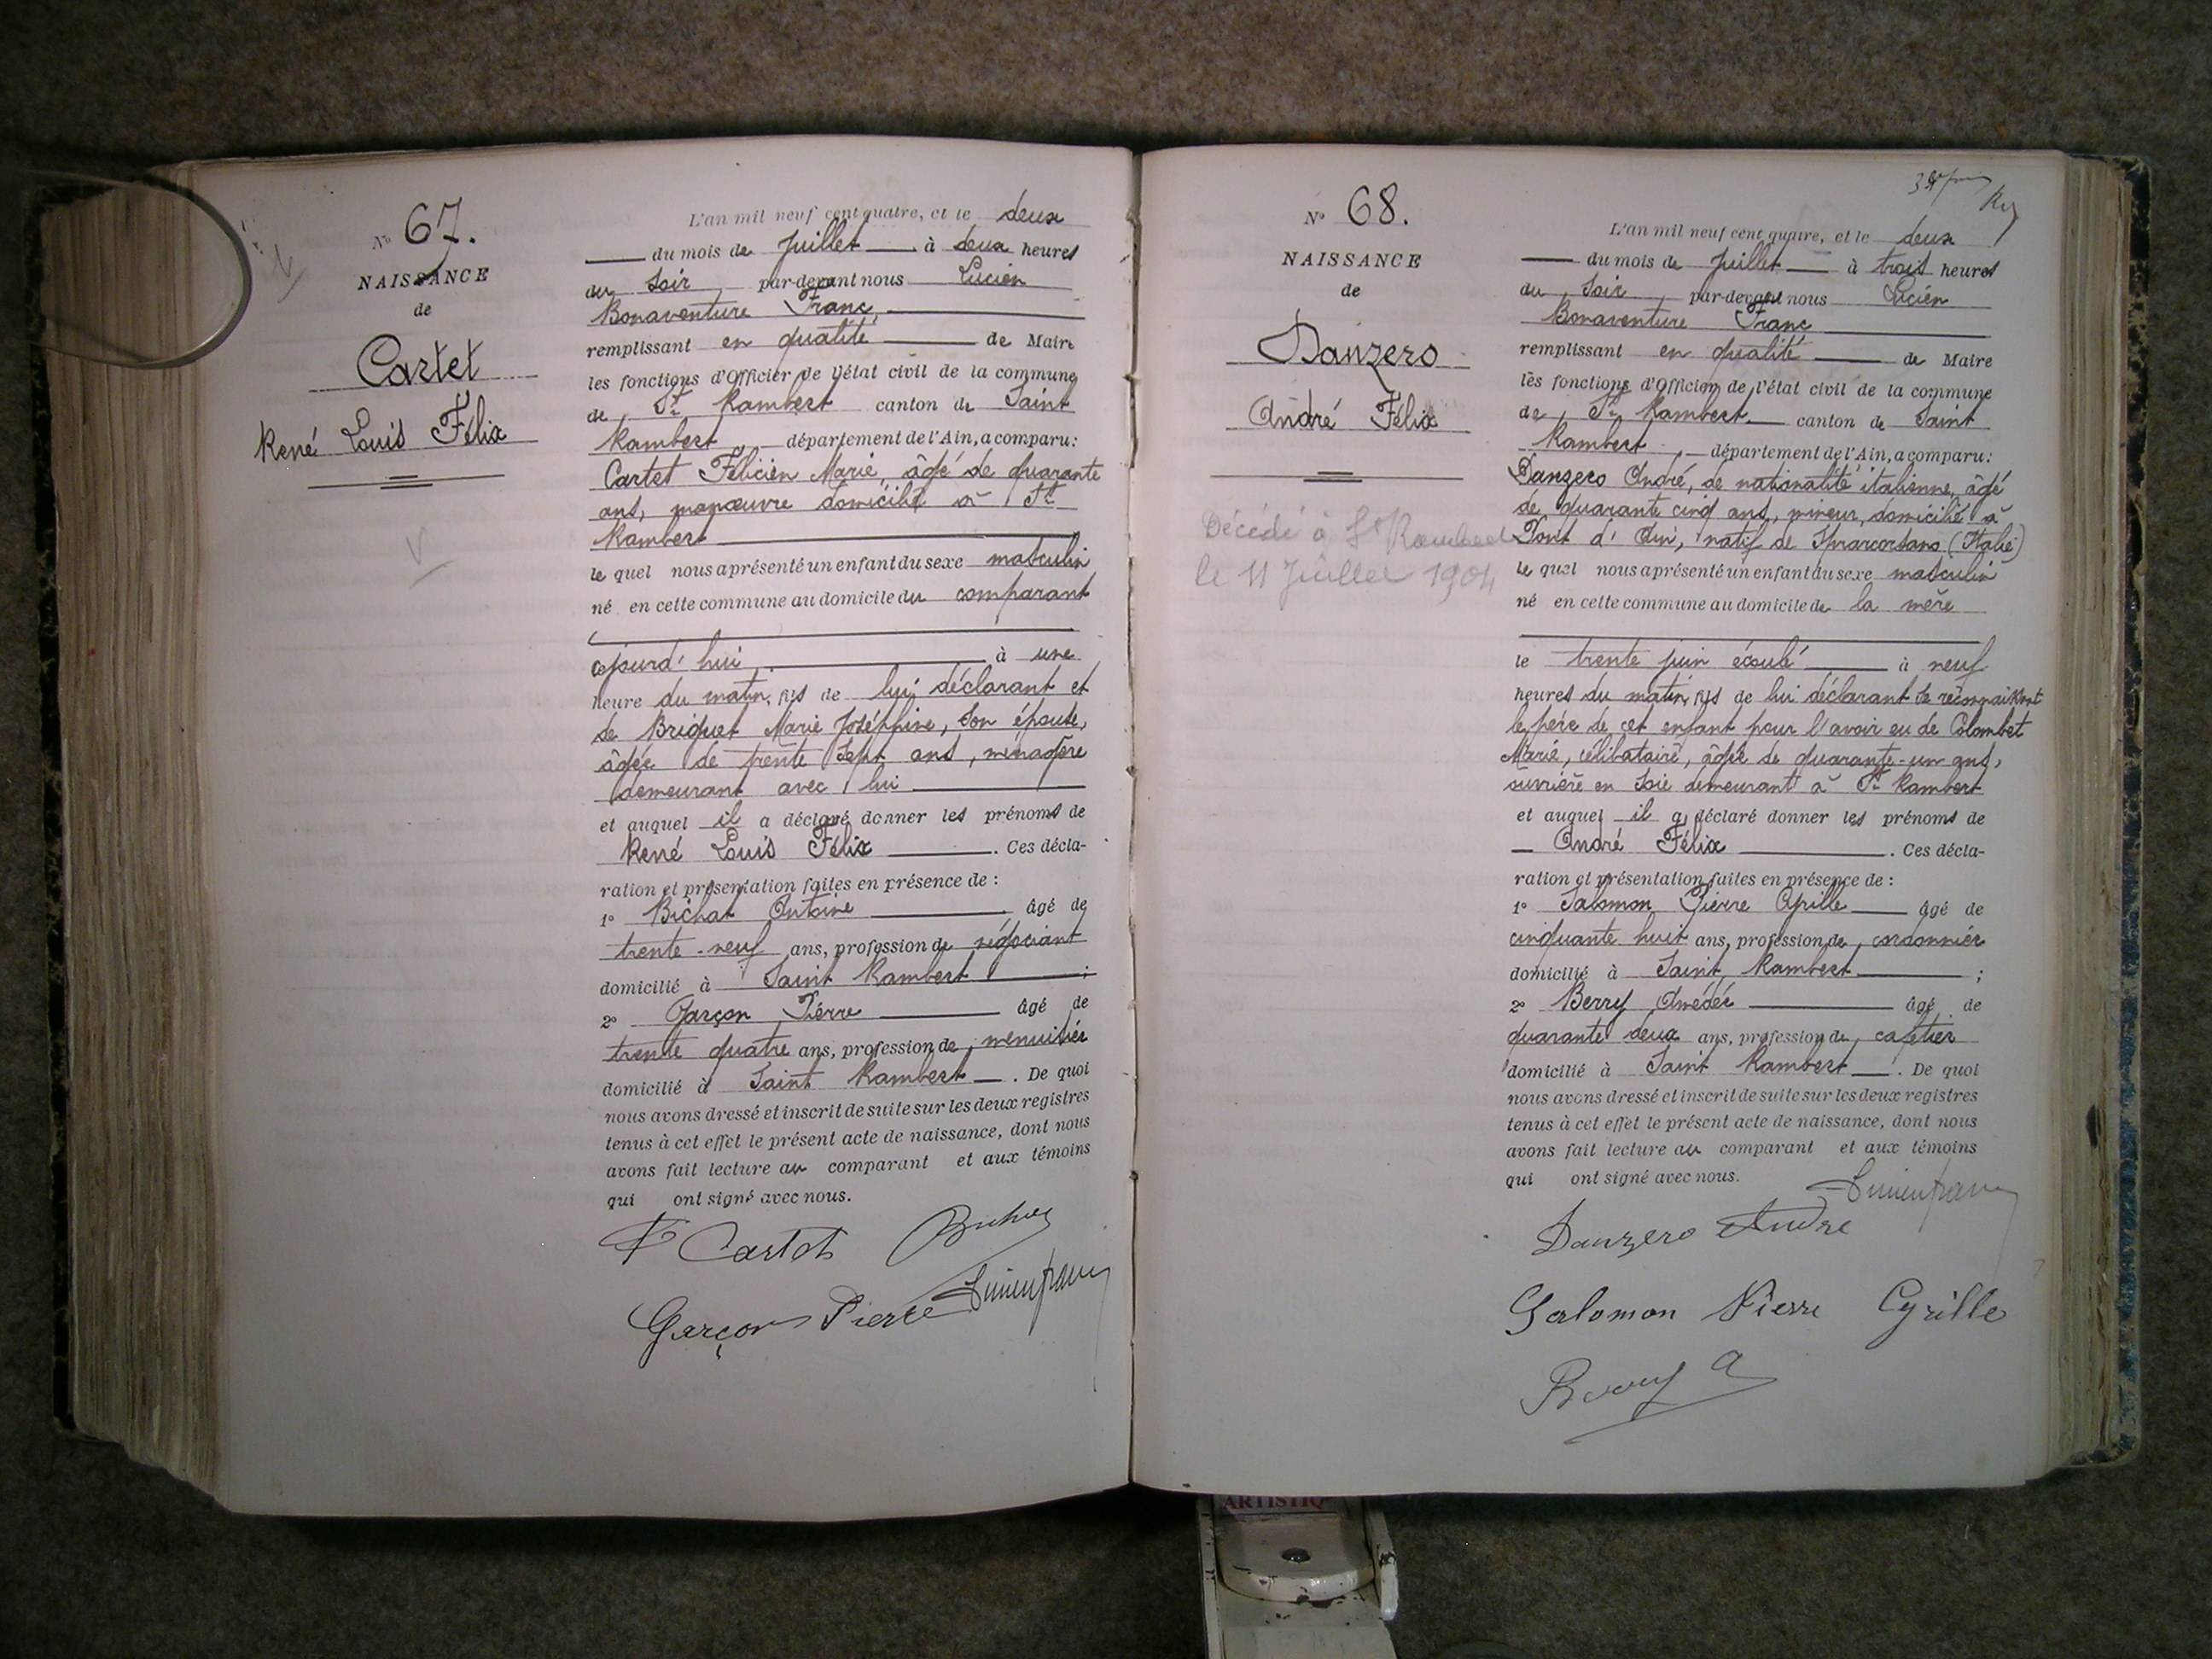 N° 67.
NAISSANCE
de
Cartet
René Louis Félix
L'an mil neuf cent quatre, et le deux
du mois de Juillet à deux heures
du soir par-devant nous Lucien
Bonaventure Franc,
remplissant en qualité de Maire
les fonctions d'Officier de l'état civil de la commune
de St Rambert canton de Saint
Rambert, département de l'Ain, a comparu:
Cartet Félicien Marie, âgé de quarante
ans, manœuvre domicilié à St
Rambert
le quel nous a présenté un enfant du sexe masculin
né en cette commune au domicile du comparant
cejourd'hui à une
heure du matin, fils de lui déclarant et
de Briquet Marie Joséphine, son épouse,
âgée de trente sept ans, ménagère
demeurant avec lui
et auquel il a déclaré donner les prénoms de
René Louis Félix. Ces décla-
ration et présentation faites en présence de :
1° Bichat Antoine âgé de
trente-neuf ans, profession de négociant
domicilié à Saint Rambert ;
2° Garçon Pierre âgé de
trente quatre ans, profession de menuisier
domicilié à Saint Rambert. De quoi
nous avons dressé et inscrit de suite sur les deux registres
tenus à cet effet le présent acte de naissance, dont nous
avons fait lecture au comparant et aux témoins
qui ont signé avec nous.
F Cartet
Garçon Pierre
N° 68.
NAISSANCE
de
Danzero
André Félix
Décédé à St Rambert
le 11 Juillet 1904
L'an mil neuf cent quatre, et le deux
du mois de Juillet à trois heures
du soir, par-devant nous Lucien
Bonaventure Franc
remplissant en qualité de Maire
les fonctions d'Officier de l'état civil de la commune
de St Rambert canton de Saint
Rambert, département de l'Ain, a comparu:
Danzero André, de nationalité italienne, âgé
de quarante cinq ans, mineur, domicilié à
Pont d'Ain, natif de (Italie)
le quel nous a présenté un enfant du sexe masculin
né en cette commune au domicile de la mère
le trente juin écoulé à neuf
heures du matin, fils de lui déclarant se reconnaissant
le père de cet enfant pour l'avoir eu de Colombet
Marie, célibataire, âgée de quarante-un ans,
ouvrière en soie demeurant à St Rambert
et auquel il a déclaré donner les prénoms de
André Félix. Ces décla-
ration et présentation faites en présence de :
1° Salomon Pierre Cyrille âgé de
cinquante huit ans, profession de cordonnier
domicilié à Saint Rambert ;
2° Berry Amédée âgé de
quarante deux ans, profession de cafetier
domicilié à Saint Rambert. De quoi
nous avons dressé et inscrit de suite sur les deux registres
tenus à cet effet le présent acte de naissance, dont nous
avons fait lecture au comparant et aux témoins
qui ont signé avec nous.
Danzero André
Salomon Pierre Cyrille
Berry A
ARTISTIQ